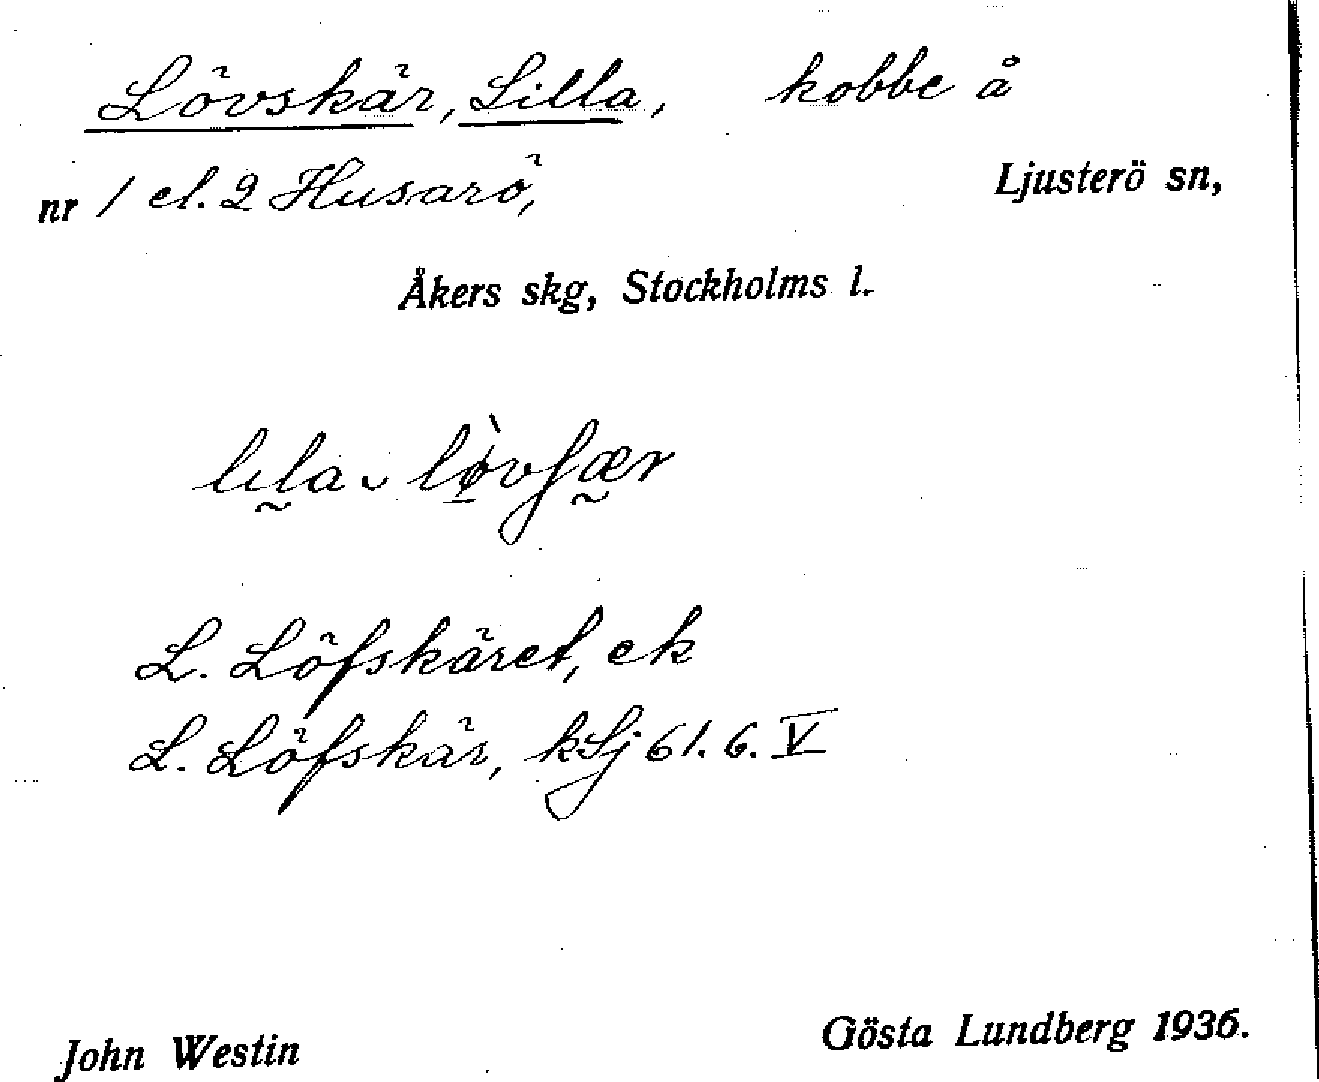 Lövskär, Lilla, kobbe å
nr 1 el. 2 Husarö, Ljusterö sn,
Åkers skg, Stockholms l.
L. Löfskäret, ek
L. Löfskär, kSj 61. 6. V
John Westin Gösta Lundberg 1936.